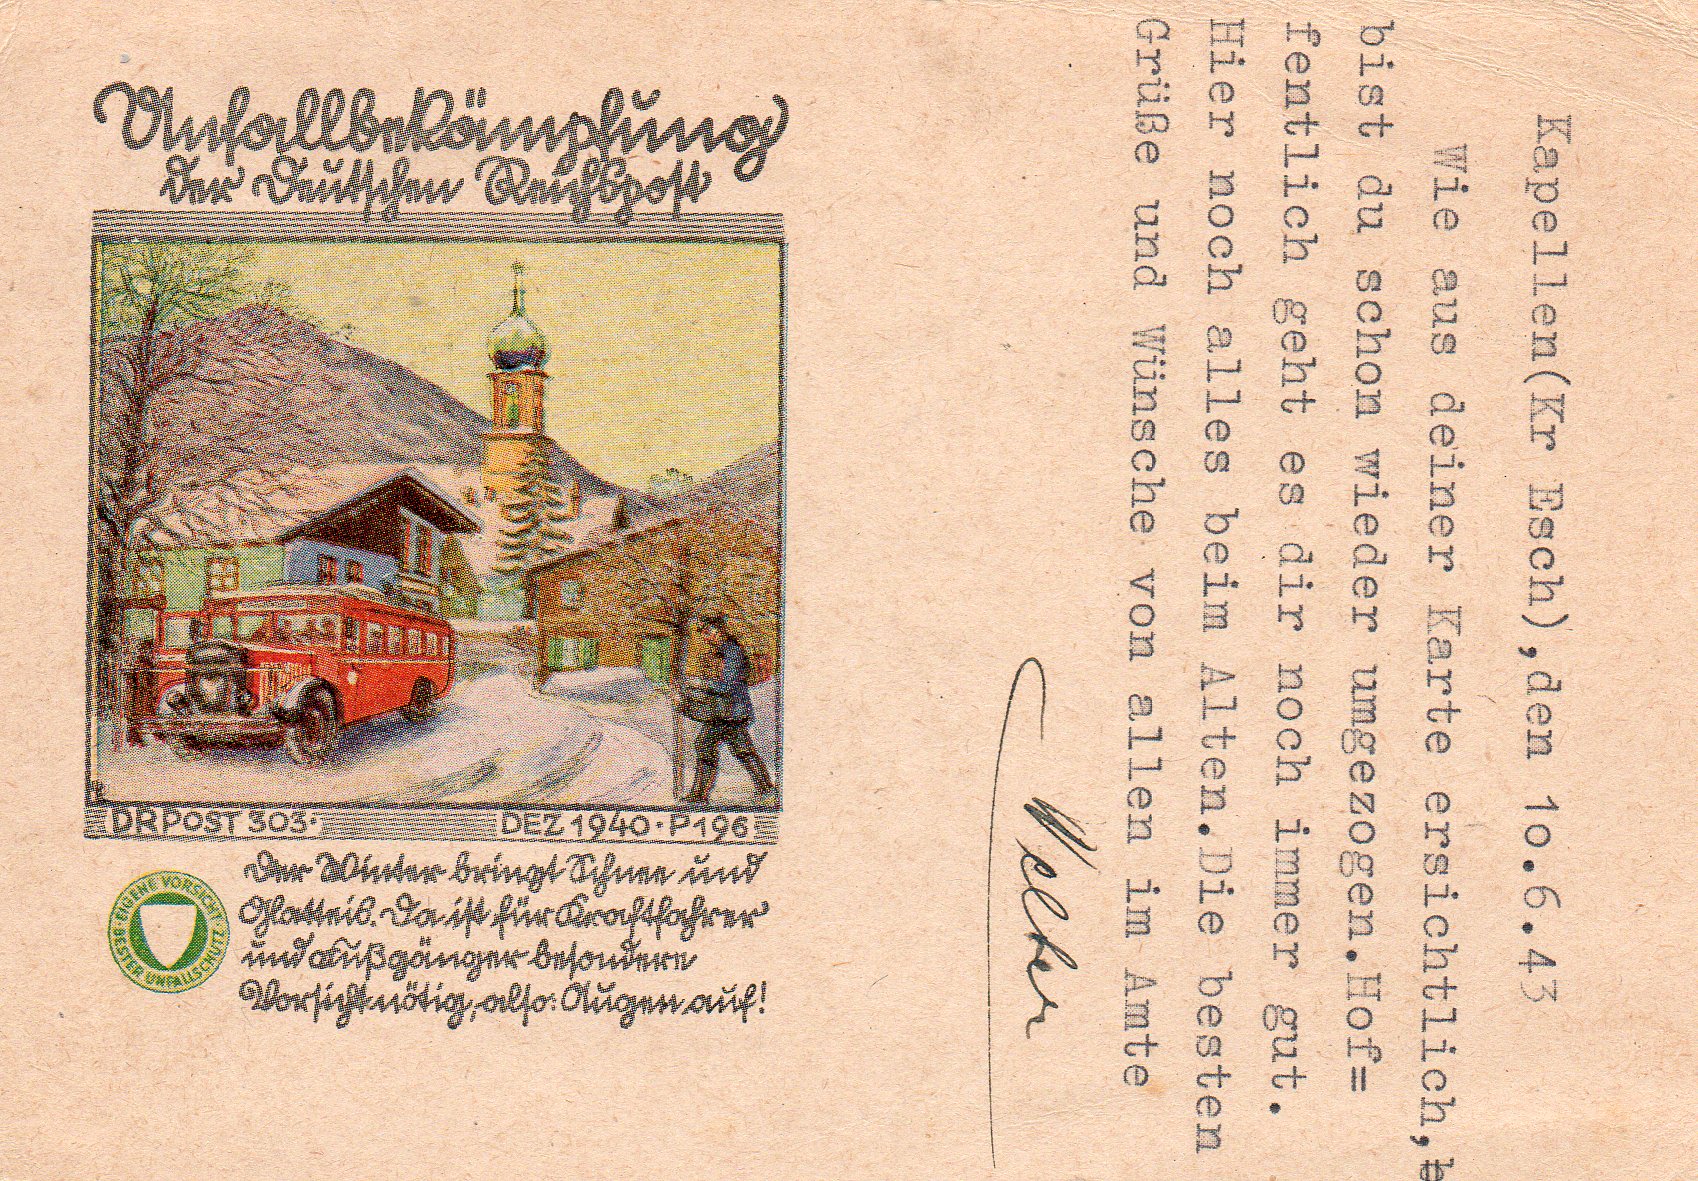 Unfallbekämpfung
der Deutschen Reichspost
DR POST 303·
DEZ 1940·P 196
EIGENE VORSICHT
BESTER UNFALLSCHUTZ
Der Winter bringt Schnee und
Glatteis. Da ist für Kraftfahrer
und Fußgänger besondere
Vorsicht nötig, also: Augen auf!
Kapellen(Kr Esch),den 1o.6.43
Wie aus deiner Karte ersichtlich,b
bist du schon wieder umgezogen.Hof=
fentlich geht es dir noch immer gut.
Hier noch alles beim Alten.Die besten
Grüße und Wünsche von allen im Amte